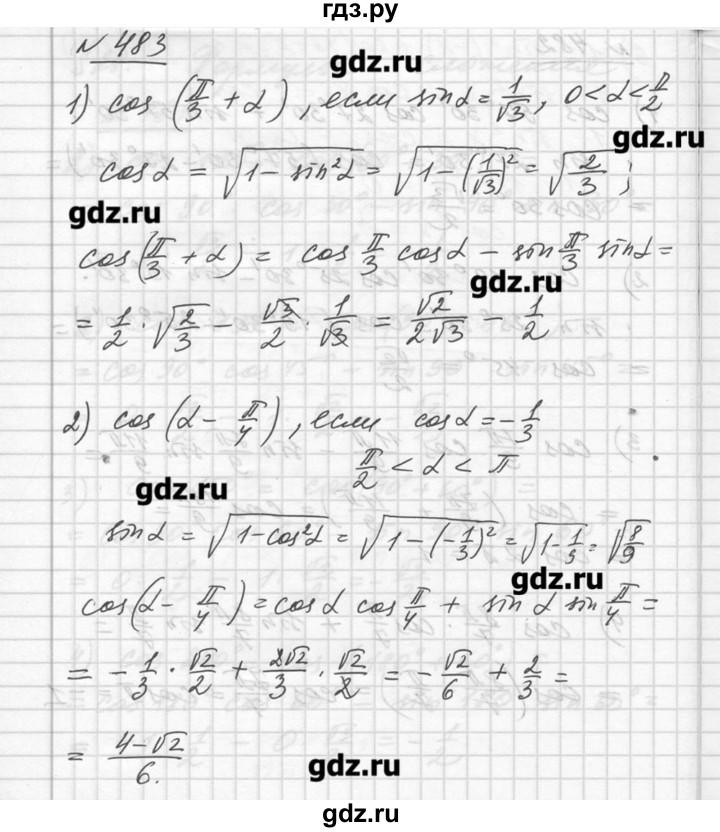 гдз.ру
№ 483
gdz.ru
1) cos (π/3 + α), если sinα = 1/√3, 0 < α < π/2
gdz.ru
cosα = √(1 − sin²α) = √(1 − (1/√3)²) = √(2/3) ;
gdz.ru
cos(π/3 + α) = cos π/3 cosα − sin π/3 sinα =
gdz.ru
= 1/2 · √(2/3) − √3/2 · 1/√3 = √2/(2√3) − 1/2
2) cos (α − π/4), если cosα = −1/3
π/2 < α < π
gdz.ru
sinα = √(1 − cos²α) = √(1 − (−1/3)²) = √(1 − 1/9) = √(8/9)
gdz.ru
cos(α − π/4) = cosα cos π/4 + sinα sin π/4 =
= −1/3 · √2/2 + 2√2/3 · √2/2 = −√2/6 + 2/3 =
= (4 − √2)/6.
gdz.ru
gdz.ru